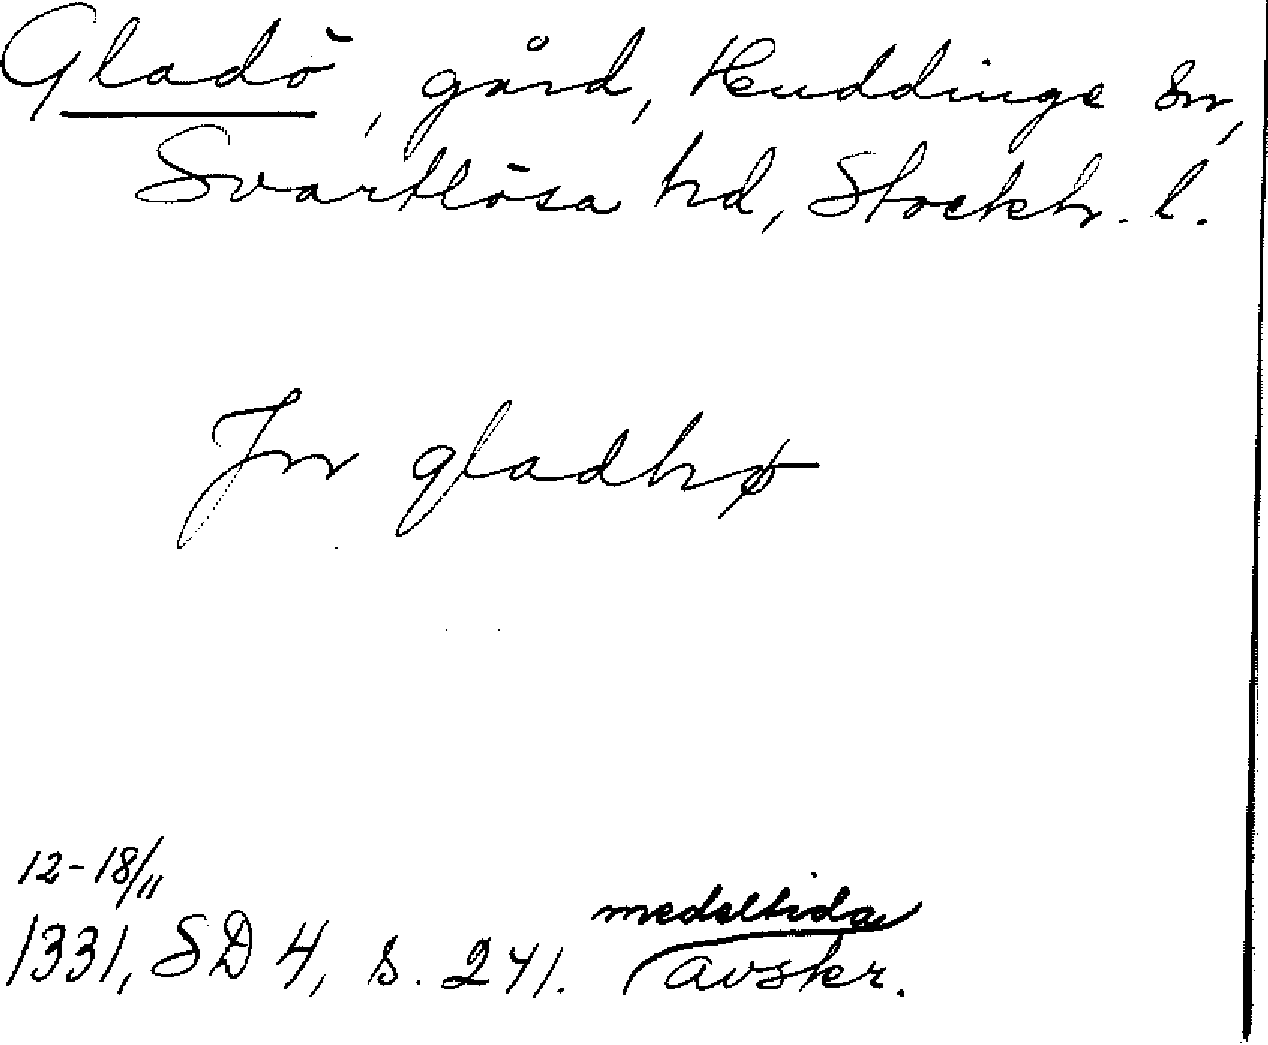 Gladö, gård, Huddinge sn,
Svartlösa hd, Stockh. l.
Jn gladhø
12-18/11
1331, SD 4, s. 241. medeltida avskr.